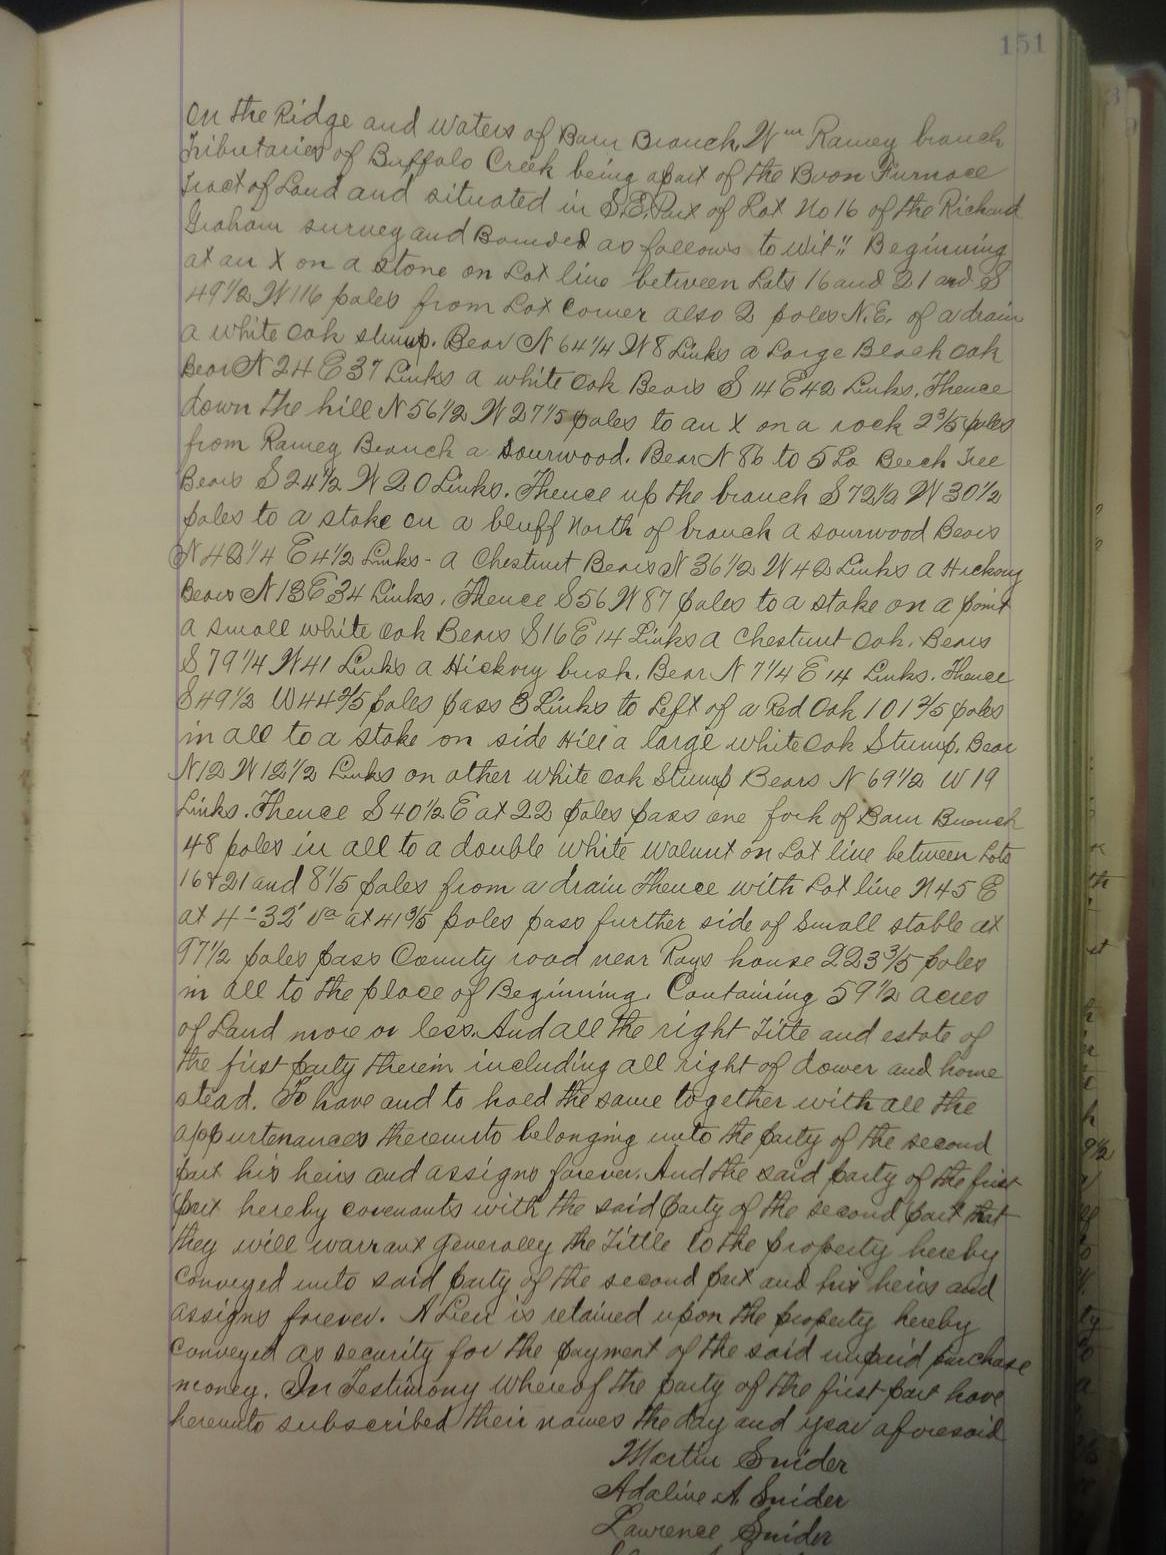 151
On the Ridge and waters of Barn Branch, Wm Ramey branch
Tributaries of Buffalo Creek being apart of the Boon Furnace
tract of Land and situated in S.E. Part of Lot No 16 of the Richard
Graham survey and Bounded as follows to wit:: Beginning
at an X on a stone on Lot line between Lots 16 and 21 and S
49 1/2 W 116 poles from Lot Corner also 2 poles N.E. of a drain
a white oak stump. Bear N 64 1/4 W 8 Links a Large Black Oak
Bear N 24 E 37 Links a white Oak Bears S 14 E 42 Links. Thence
down the hill N 56 1/2 W 27 1/5 poles to an X on a rock 2 3/5 poles
from Ramey Branch a sourwood. Bear N 86 to 5 Lo Beech Tree
Bears S 24 1/2 W 20 Links. Thence up the branch S 72 1/2 W 30 1/2
poles to a stake on a bluff North of branch a sourwood Bears
N 42 1/4 E 4 1/2 Links - a Chestnut Bears N 36 1/2 W 42 Links a Hickory
Bears N 13 E 34 Links. Thence S 56 W 87 poles to a stake on a point
a small white oak Bears S 16 E 14 Links a Chestnut Oak. Bears
S 79 1/4 W 41 Links a Hickory bush. Bear N 7 1/4 E 14 Links. Thence
S 49 1/2 W 44 2/5 poles pass 3 Links to Left of a Red Oak 101 2/5 poles
in all to a stake on side Hill a large white Oak Stump. Bear
N 12 W 12 1/2 Links on other white oak Stump Bears N 69 1/2 W 19
Links. Thence S 40 1/2 E at 22 poles pass one fork of Barn Branch
48 poles in all to a double white walnut on Lot line between Lots
16 & 21 and 8 1/5 poles from a drain Thence with Lot line N 45 E
at 4° 32' va at 41 3/5 poles pass further side of Small stable at
97 1/2 poles pass County road near Rays house 223 3/5 poles
in all to the place of Beginning. Containing 59 1/2 acres
of Land more or less. And all the right Title and estate of
the first party therein including all right of dower and home
stead. To have and to hold the same together with all the
appurtenances thereunto belonging unto the party of the second
part his heirs and assigns forever. And the said party of the first
part hereby covenants with the said party of the second part that
they will warrant generally the Tittle to the property hereby
conveyed unto said party of the second part and his heirs and
assigns forever. A Lien is retained upon the property hereby
conveyed as security for the payment of the said unpaid purchase
money. In Testimony whereof the party of the first part have
hereunto subscribed their names the day and year aforesaid
Martin Snider
Adaline A. Snider
Lawrence Snider